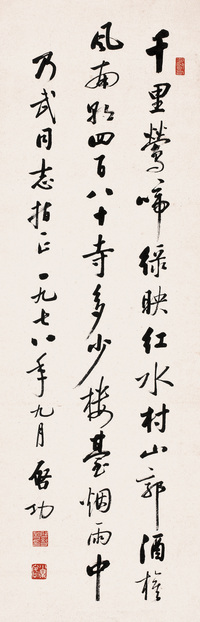 千里莺啼绿映红水村山郭酒旗
风南朝四百八十寺多少楼台烟雨中
乃武同志指正一九七八年九月 启功